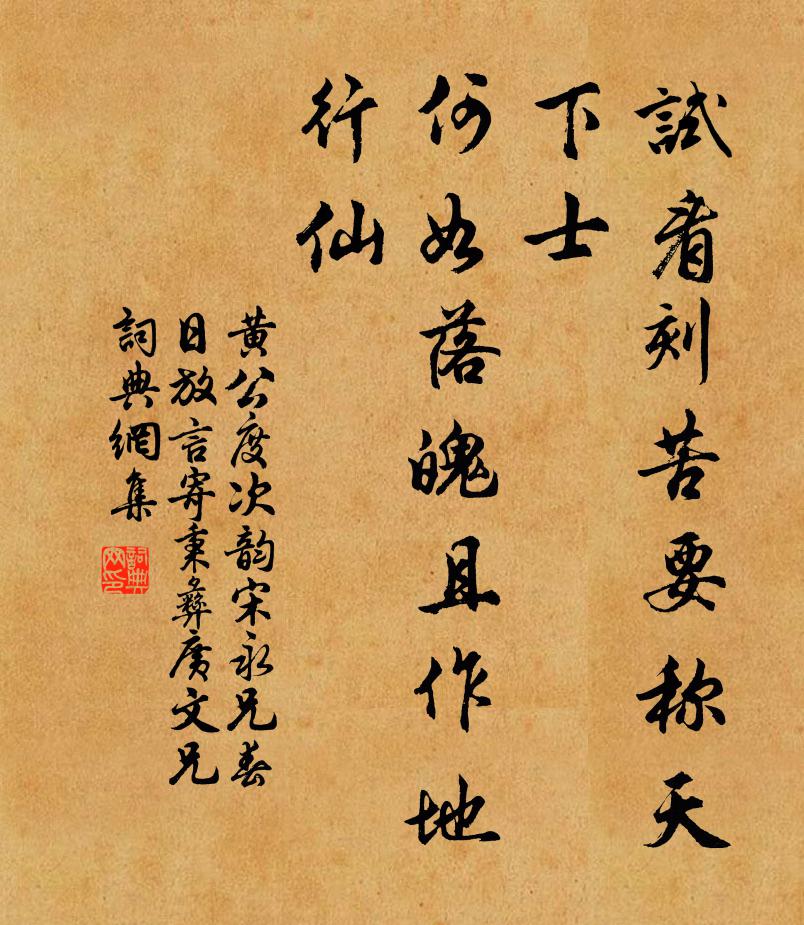 試看刻苦要称天
下士
何如落魄且作地
行仙
黄公度次韵宋永兄春
日放言寄秉彝廣文兄
詞典網集
詞典網印